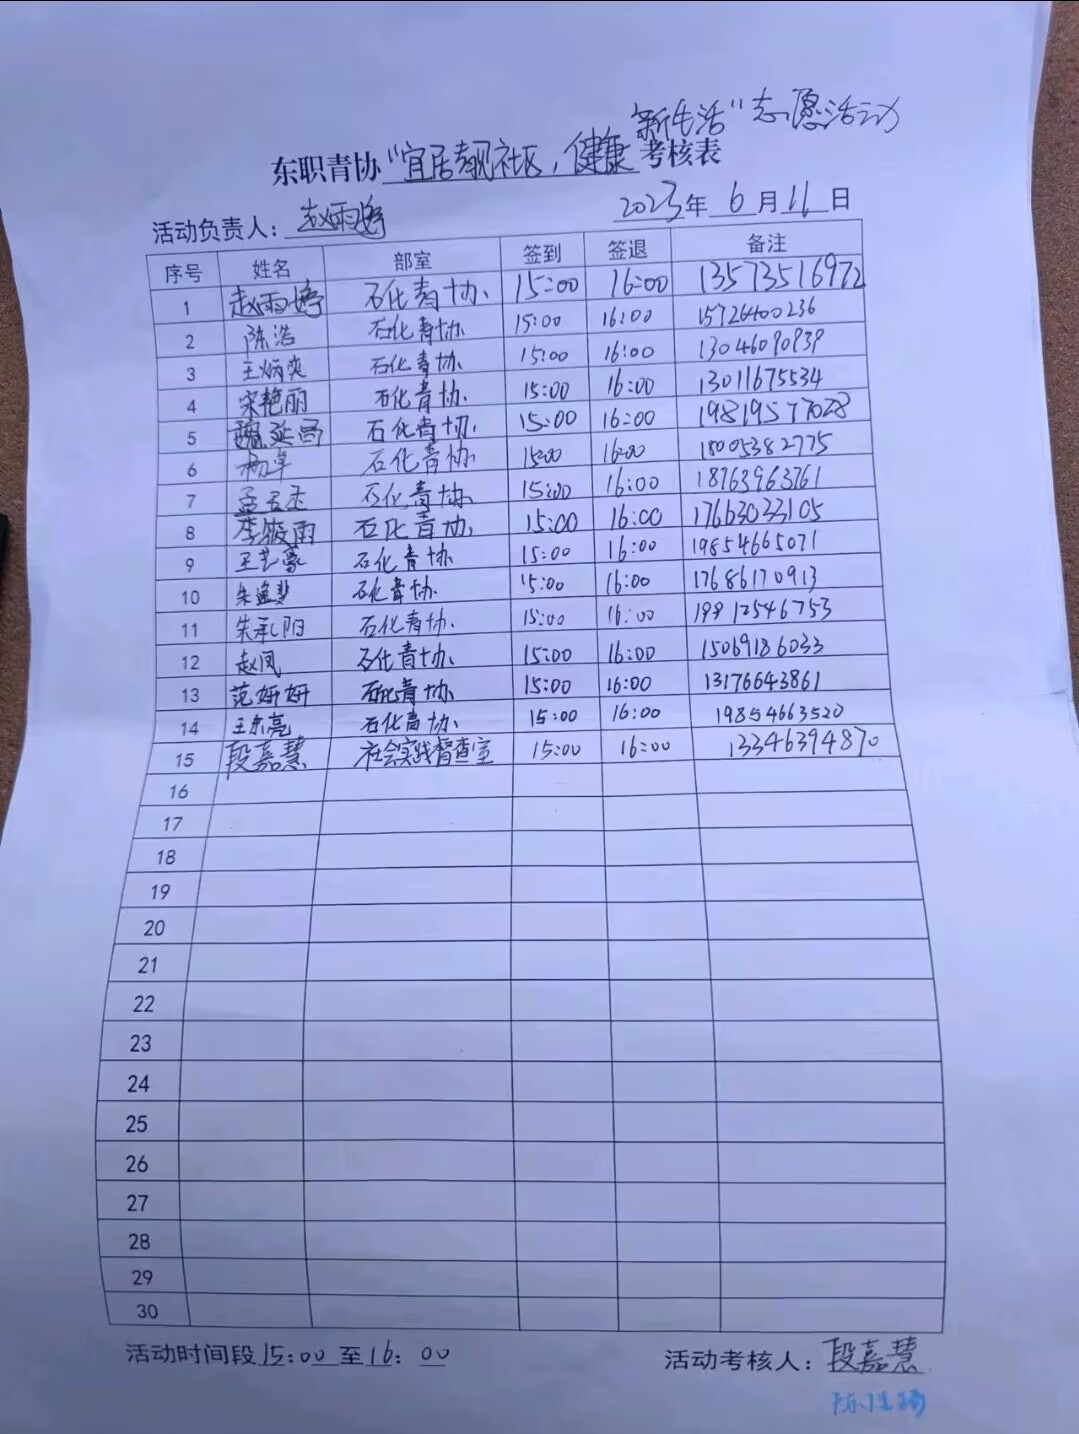 新生活”志愿活动
东职青协“宜居靓社区，健康 考核表
活动负责人：赵雨婷 2023年 6 月 11 日
序号 姓名 部室 签到 签退 备注
1 赵雨婷 石化青协 15:00 16:00 13573516972
2 陈浩 石化青协 15:00 16:00 15726400236
3 王炳奕 石化青协 15:00 16:00 13046090939
4 宋艳丽 石化青协 15:00 16:00 13011675534
5 魏延昌 石化青协 15:00 16:00 19819577028
6 杨卓 石化青协 15:00 16:00 18005382775
7 石化青协 15:00 16:00 18763963761
8 李筱雨 石化青协 15:00 16:00 17663033105
9 王艺豪 石化青协 15:00 16:00 19854665071
10 石化青协 15:00 16:00 17686170913
11 朱承阳 石化青协 15:00 16:00 19812546753
12 赵凤 石化青协 15:00 16:00 15069186033
13 范妍妍 石化青协 15:00 16:00 13176643861
14 王东亮 石化青协 15:00 16:00 19854663520
15 段嘉慧 社会实践督查室 15:00 16:00 13346394870
16
17
18
19
20
21
22
23
24
25
26
27
28
29
30
活动时间段 15:00 至 16:00 活动考核人：段嘉慧